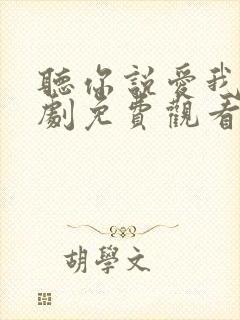 聽你說愛我
劇免費觀看
胡學文